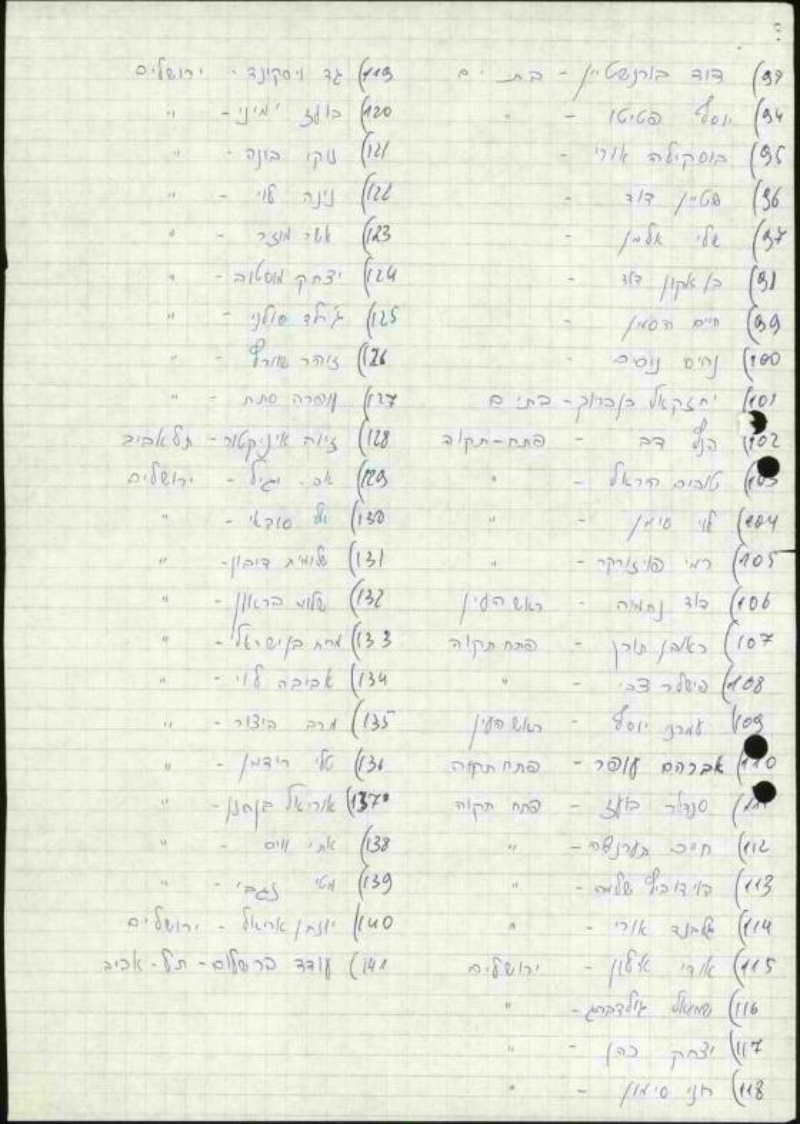 93) דוד בורנשטיין - בת ים
94) יוסף פטיטו - "
95) בוסקילה אורי -
96) פטיין דוד -
97) אלי אלמן -
98) בן אקון דוד -
99) חיים הסמן -
100) נחים ניסים -
101) יחזקאל בן ברוך - בת ים
102) הנל דב - פתח-תקוה
103) טובים הראל - "
104) לוי סימן - "
105) רמי פויזורקר - "
106) דוד נחמיה - ראש העין
107) ראובן תורן - פתח תקוה
108) פישלר צבי - "
109) עמרני יוסף - ראש העין
110) אברהם עופר - פתח תקוה
111) סנדלר בועז - פתח תקוה
112) חיים - "
113) דוידוביץ שלמה - "
114) גלבנד אורי - "
115) אורי אילון - ירושלים
116) שמואל גולדברג - "
117) יצחק כהן - "
118) חני סימון - "
119) גד ויסקונד - ירושלים
120) בועז ימיני - "
121) נוקי בונה - "
122) נינה לוי - "
123) אשר מוזר - "
124) יצחק מוסטוב - "
125) ג'רלד סולני - "
126) זוהר שורץ - "
127) עופרה סתת - "
128) זיוה איניקטור - תל אביב
129) אבי יגיל - ירושלים
130) יגאל סודאי - "
131) שלומית דיבון - "
132) שלומ בראון - "
133) מרים בן ישראל - "
134) אביבה לוי - "
135) מרב ביצור - "
136) טלי רידמן - "
137) אוריאל בן חנן - "
138) אתי וויס - "
139) מטי נגבי - "
140) יונתן אריאל - ירושלים
141) עודד פרשלום - תל-אביב